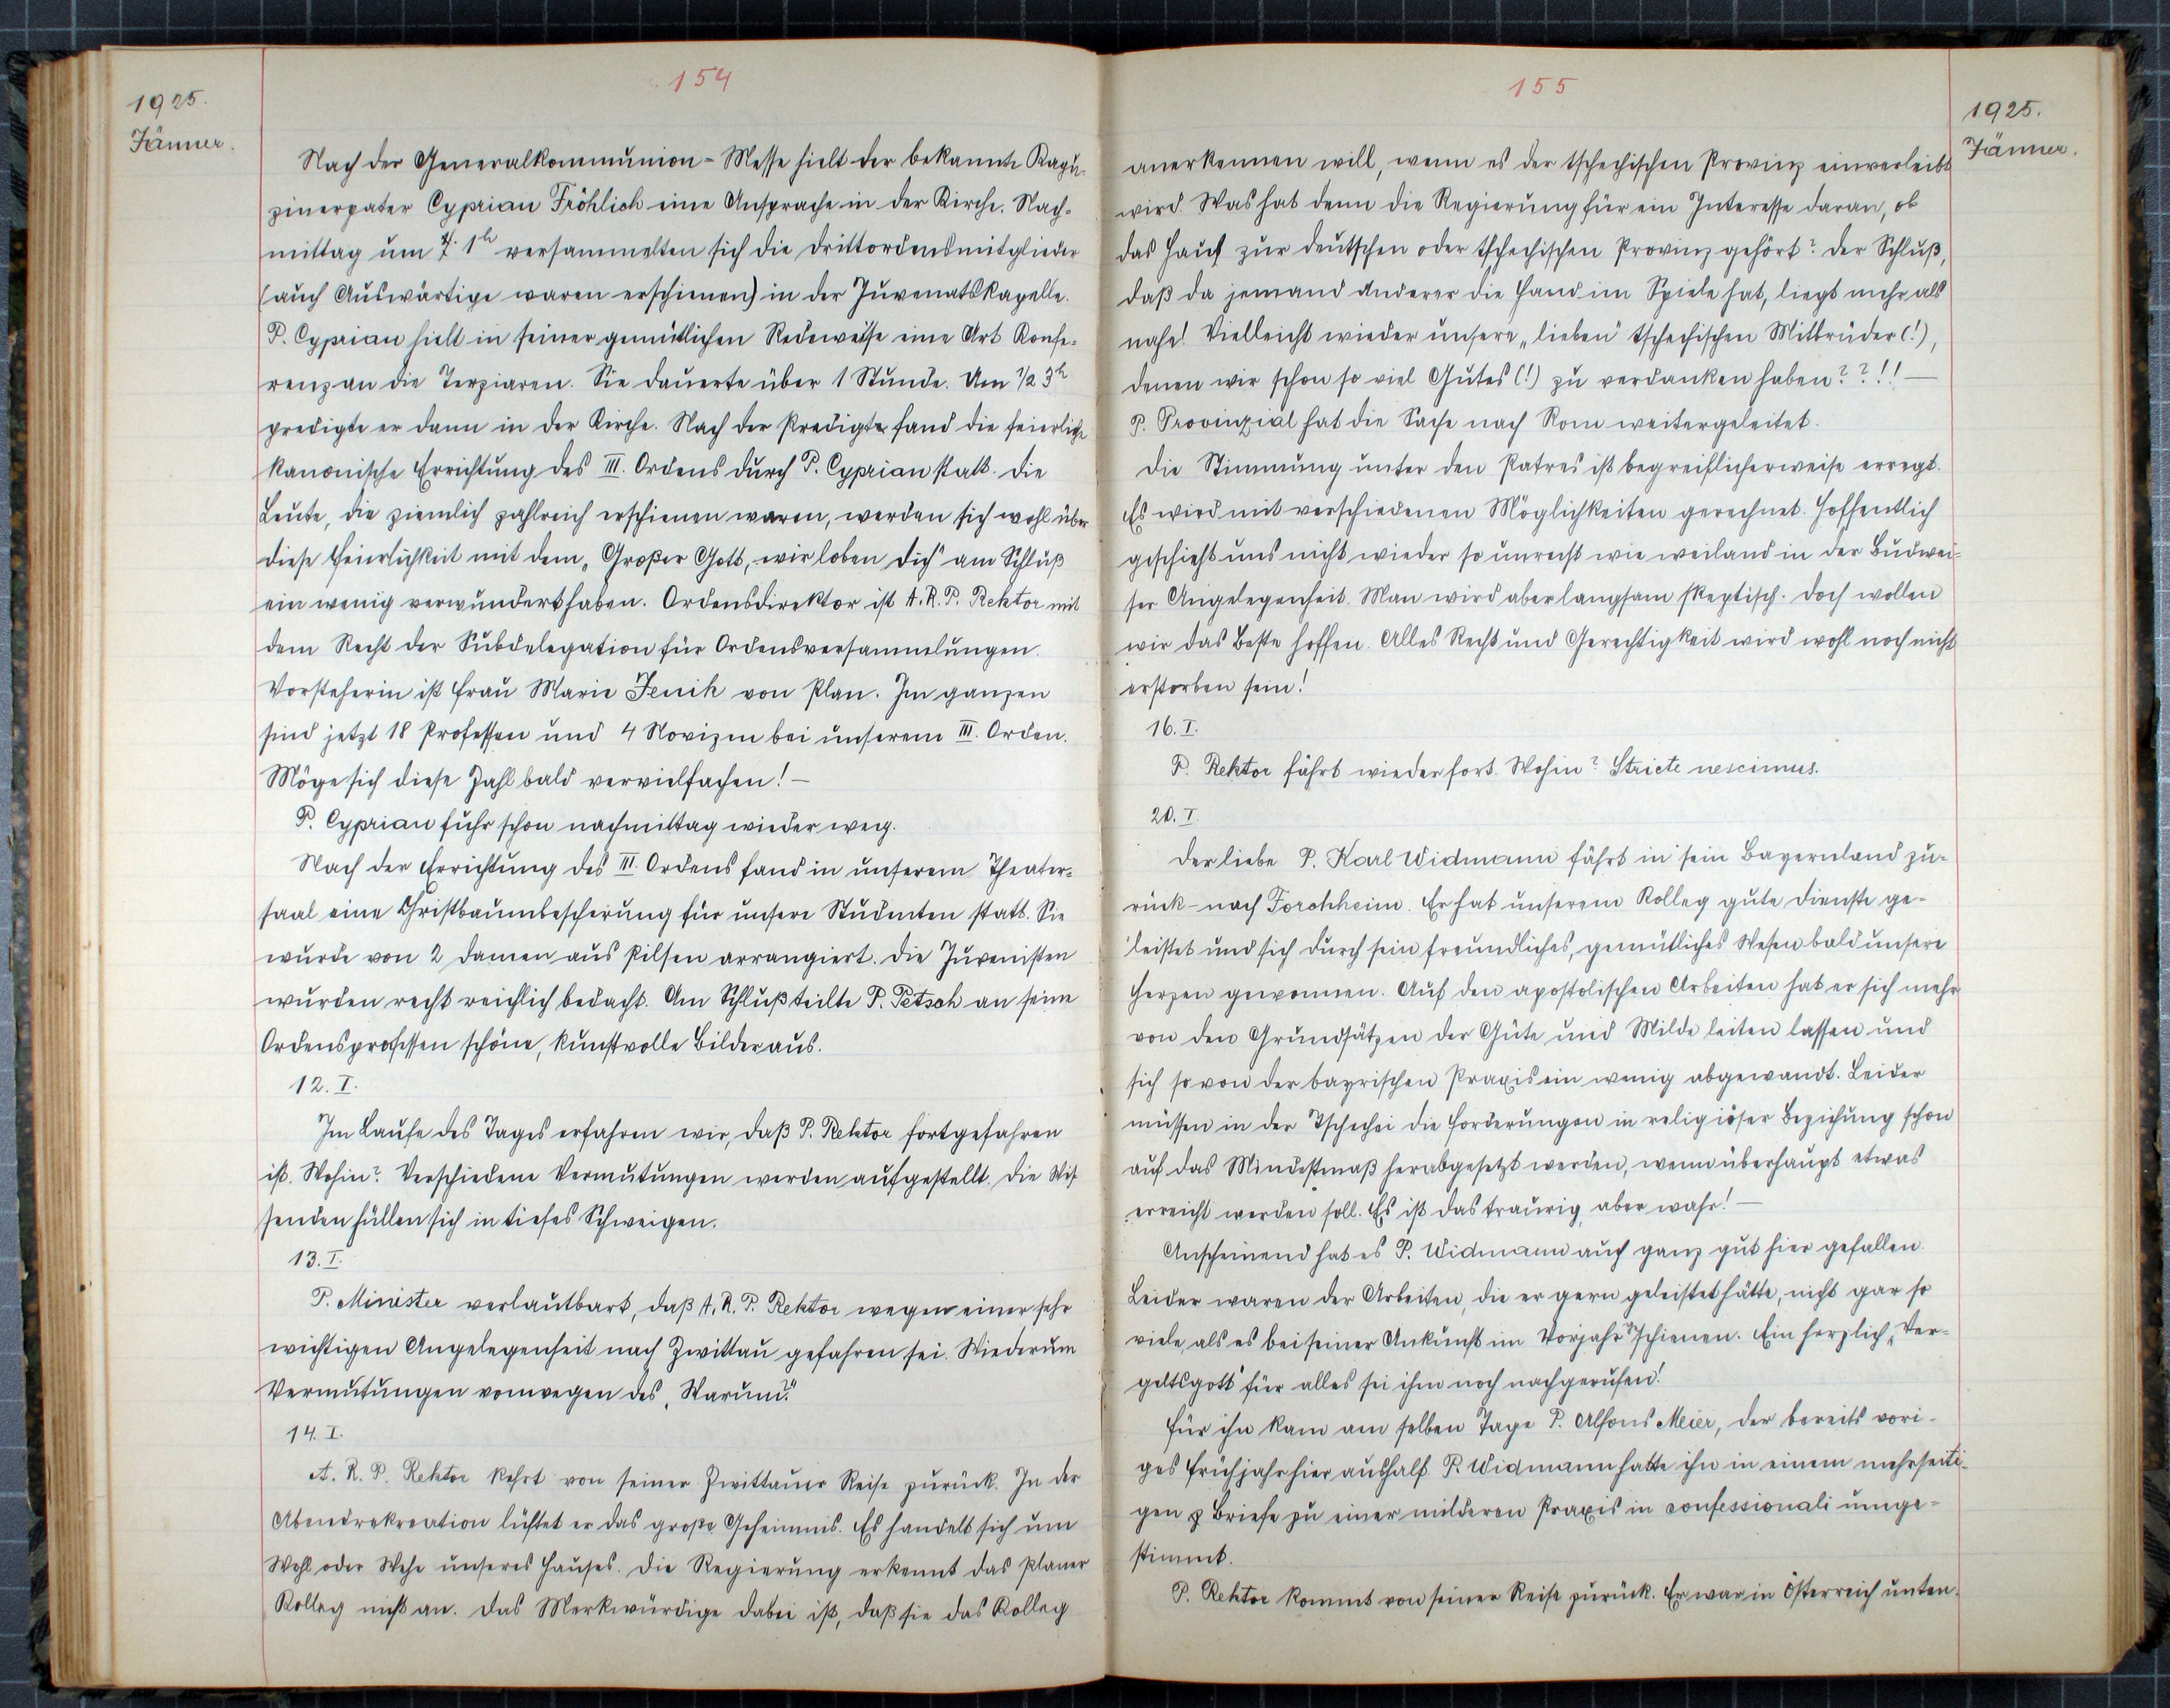 154
1925.
Jänner.
Nach der Generalkommunion-Messe hielt der bekannte Kapu-
zinerpater Cyprian Fröhlich eine Ansprache in der Kirche. Nach-
mittag um 1h versammelten sich die Drittordensmitglieder
(auch Auswärtige waren erschienen) in der Juvenatskapelle.
P. Cyprian hielt in seiner gemütlichen Redeweise eine Art Konfe-
renz an die Terziaren. Sie dauerte über 1 Stunde. Um 1/2 3h
predigte er dann in der Kirche. Nach der Predigt fand die feierliche
kanonische Errichtung des III. Ordens durch P. Cyprian statt. Die
Leute, die ziemlich zahlreich erschienen waren, werden sich wohl über
diese Feierlichkeit mit dem „Großer Gott, wir loben dich" am Schluß
ein wenig verwundert haben. Ordensdirektor ist A. R. P. Rektor mit
dem Recht der Subdelegation für Ordensversammlungen.
Vorsteherin ist Frau Marie Jenik von Plan. Im ganzen
sind jetzt 18 Professen und 4 Novizen bei unserem III. Orden.
Möge sich diese Zahl bald vervielfachen! –
P. Cyprian fuhr schon nachmittag wieder weg.
Nach der Errichtung des III. Ordens fand in unserem Theater-
saal eine Christbaumbescherung für unsere Studenten statt. Sie
wurde von 2 Damen aus Pilsen arrangiert. Die Juvenisten
wurden recht reichlich bedacht. Am Schluß teilte P. Petsch an seine
Ordensprofessen schöne, kunstvolle Bilder aus.
12. I.
Im Laufe des Tages erfahren wir, daß P. Rektor fortgefahren
ist. Wohin? Verschiedene Vermutungen werden aufgestellt. Die Wis-
senden hüllen sich in tiefes Schweigen.
13. I.
P. Minister verlautbart, daß A. R. P. Rektor wegen einer sehr
wichtigen Angelegenheit nach Zwittau gefahren sei. Wiederum
Vermutungen vonwegen des „Warum?"
14. I.
A. R. P. Rektor kehrt von seiner Zwittauer Reise zurück. In der
Abendrekreation lüftet er das große Geheimnis. Es handelt sich um
Wohl oder Wehe unseres Hauses. Die Regierung erkennt das Planer
Kolleg nicht an. Das Merkwürdige dabei ist, daß sie das Kolleg
155
1925.
Jänner.
anerkennen will, wenn es der tschechischen Provinz einverleibt
wird. Was hat denn die Regierung für ein Interesse daran, ob
das Haus zur deutschen oder tschechischen Provinz gehört? Der Schluß,
daß da jemand Anderer die Hand im Spiele hat, liegt mehr als
nahe! Vielleicht wieder unsere „lieben" tschechischen Mitbrüder (!),
denen wir schon so viel Gutes (!) zu verdanken haben??!! –
P. Provinzial hat die Sache nach Rom weitergeleitet.
Die Stimmung unter den Patres ist begreiflicherweise erregt.
Es wird mit verschiedenen Möglichkeiten gerechnet. Hoffentlich
geschieht uns nicht wieder so unrecht wie weiland in der Budwei-
ser Angelegenheit. Man wird aber langsam skeptisch. Doch wollen
wir das Beste hoffen. Alles Recht und Gerechtigkeit wird wohl noch nicht
erstorben sein!
16. I.
P. Rektor fährt wieder fort. Wohin? Stricte nescimus.
20. I.
Der liebe P. Karl Widmann fährt in sein Bayernland zu-
rück – nach Forchheim. Er hat unserem Kolleg gute Dienste ge-
leistet und sich durch sein freundliches, gemütliches Wesen bald unsere
Herzen gewonnen. Auf den apostolischen Arbeiten hat er sich mehr
von den Grundsätzen der Güte und Milde leiten lassen und
sich so von der bayrischen Praxis ein wenig abgewandt. Leider
müssen in der Tschechei die Forderungen in religiöser Beziehung schon
auf das Mindestmaß herabgesetzt werden, wenn überhaupt etwas
erreicht werden soll. Es ist das traurig, aber wahr! –
Anscheinend hat es P. Widmann auch ganz gut hier gefallen.
Leider waren der Arbeiten, die er gern geleistet hätte, nicht gar so
viele, als es bei seiner Ankunft im Vorjahr schienen. Ein herzlich „Ver-
geltsgott" für alles sei ihm noch nachgerufen!
Für ihn kam am selben Tage P. Alfons Meier, der bereits vori-
ges Frühjahr hier aushalf. P. Widmann hatte ihn in einem mehrseiti-
gen Briefe zu einer milderen Praxis in confessionali umge-
stimmt.
P. Rektor kommt von seiner Reise zurück. Er war in Österreich unten.